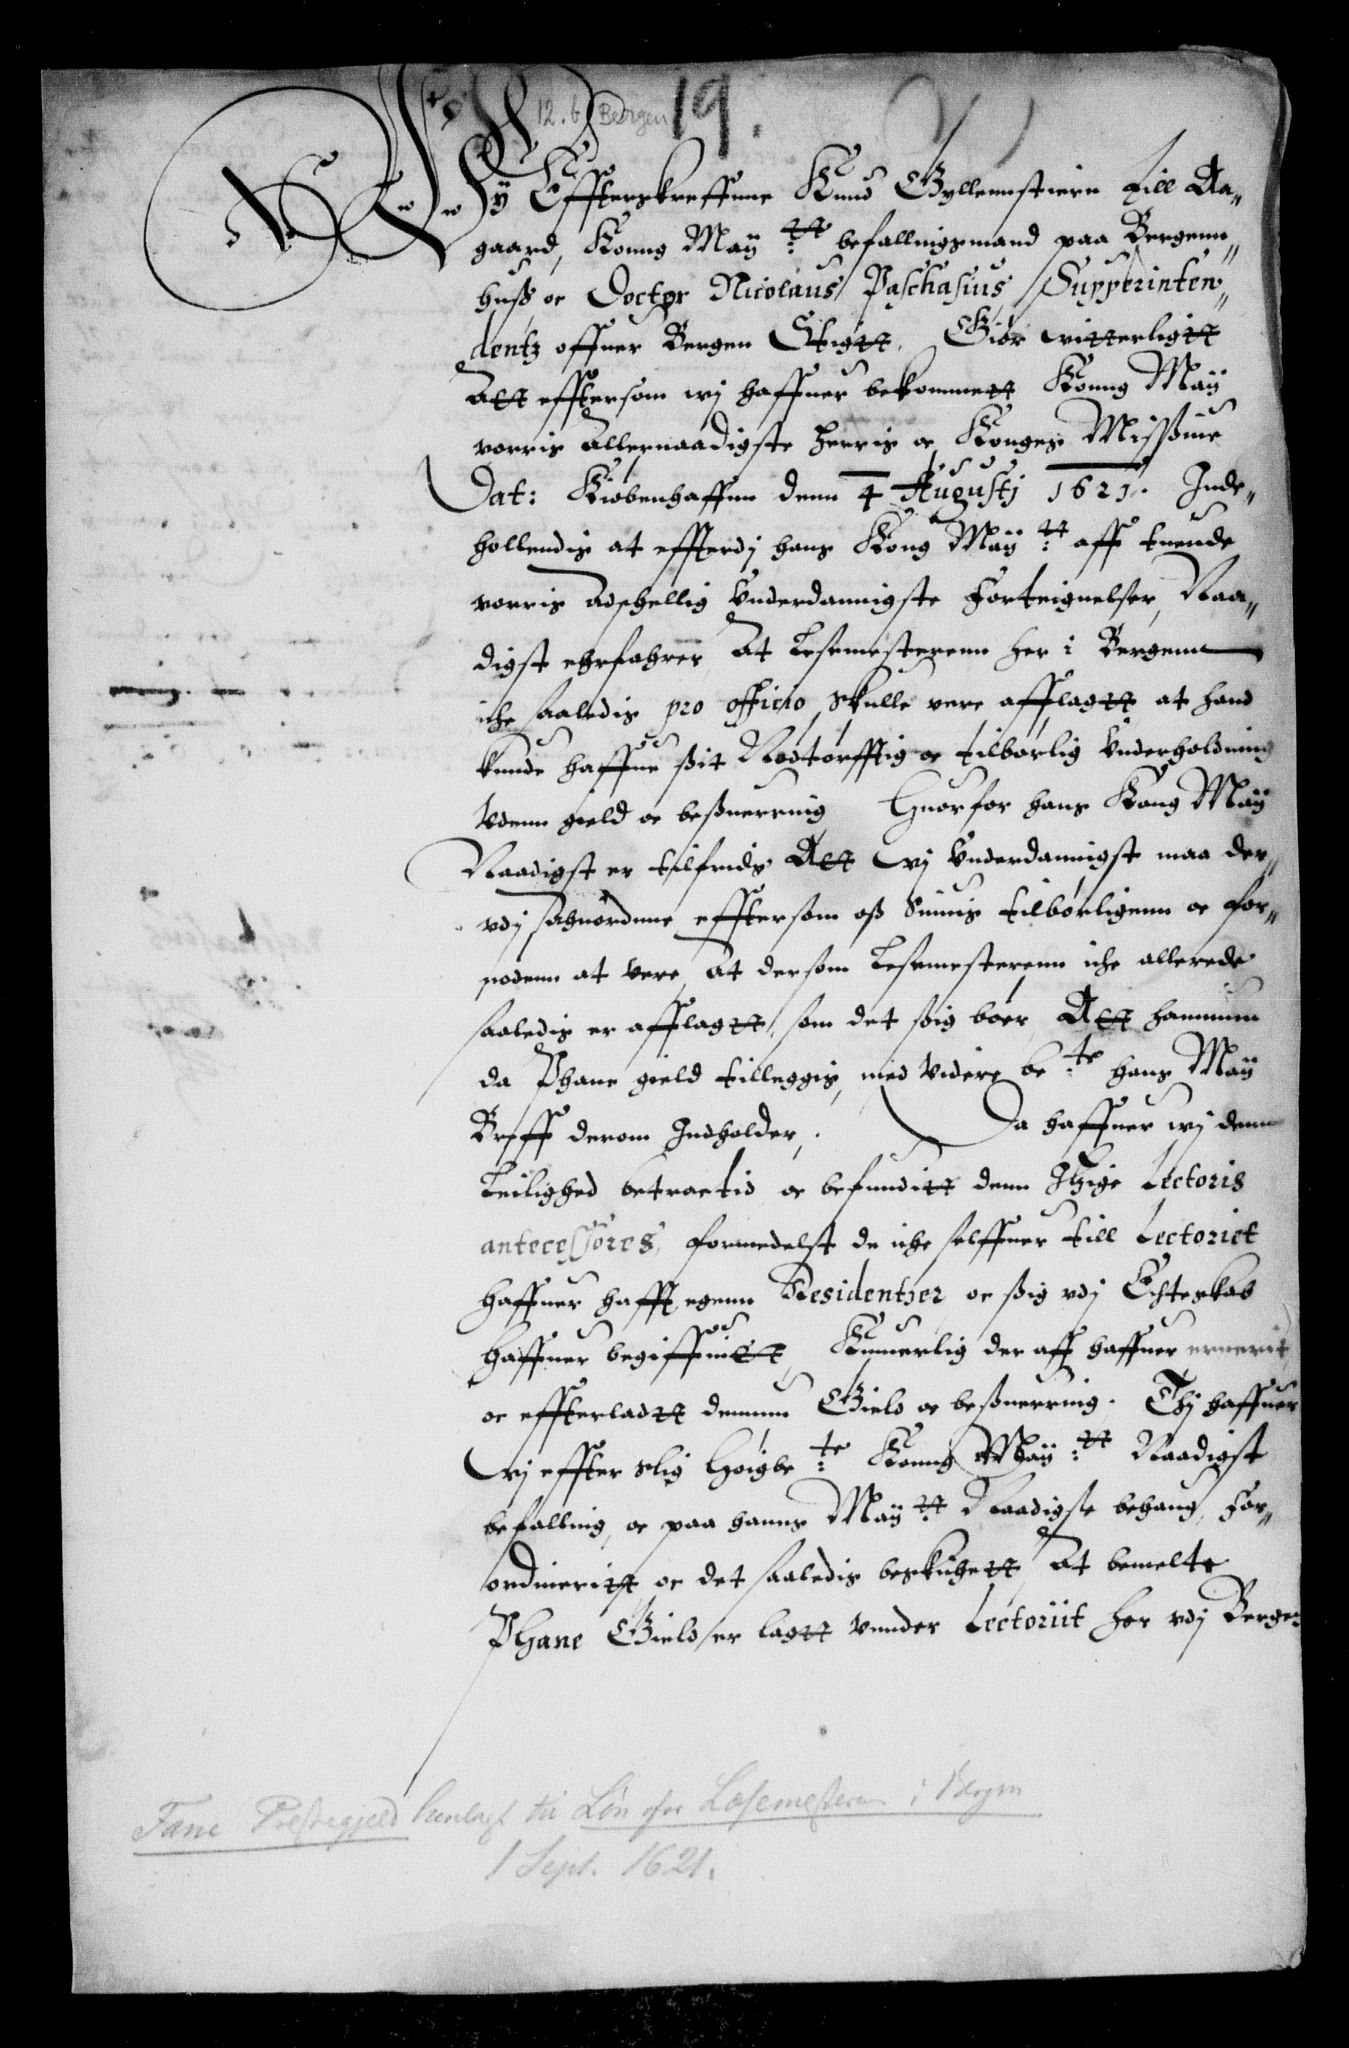 12. b Bergen 19.
Wy Effterskreffune Knud Gyllennstiern till Aa„
gaard, Konng May:tt befallingsmand paa Bergenn„
huss oc Doctor Nicolaus Paschasius, Supperinten„
dentz offuer Bergen Stigtt, Giør witterligtt
Att efftersom wj haffuer bekommett Konng May
vorris Allernaadigste Herris oc Konges Missiue
Dat: Kiøbenhaffnn denn 4 Augustj 1621. Inde„
hollendis at effterdj hans Kong May:tt aff tuende
vorris adschellig Vnderdannigste Forteignelser, Naa„
digst ehrfahrer, At Lesemesterenn her i Bergenn
iche saaledis pro officio skulle vere afflagtt, at hand
kunde haffue sit Nødtorfftig oc tilbørlig Vnderholdning
Vdenn gield oc besuerring Huorfor hans Kong May
Naadigst er tilfreds Att wj Vnderdannigst maa der„
vdj forordne, efftersom oss Siunis tilbørligenn oc for„
nødenn at vere, At dersom Lesemesterenn iche allerede
saaledis er afflagtt, som det sig bøer, Att hannum
da Phane gield tilleggis, med Videre be:te hans May
Breff derom Indholder, Da haffuer wj denn
Leilighed betractid oc befunditt denn Itzige Lectoris
antecessores, formedelst de iche selffuer till Lectoriet
haffuer hafft egenn Residentzer oc sig vdj Echteskab
haffuer begiffuitt, Kummerlig der aff haffuer ernerit
oc effterladtt dennum Gield oc besuerring. Thj haffuer
wj effter slig Høigbe:te Konng May:tt Naadigst
befalling, oc paa hanns May:tt Naadigste behaug, For„
ordinerit oc det saaledis beskichett, At bemelte
Phane Gield er lagtt vnnder Lectoriit her vdj Bergen
Fane Prestegjeld henlagt til Løn for Læsemesteren i Bergen
1 Sept. 1621.